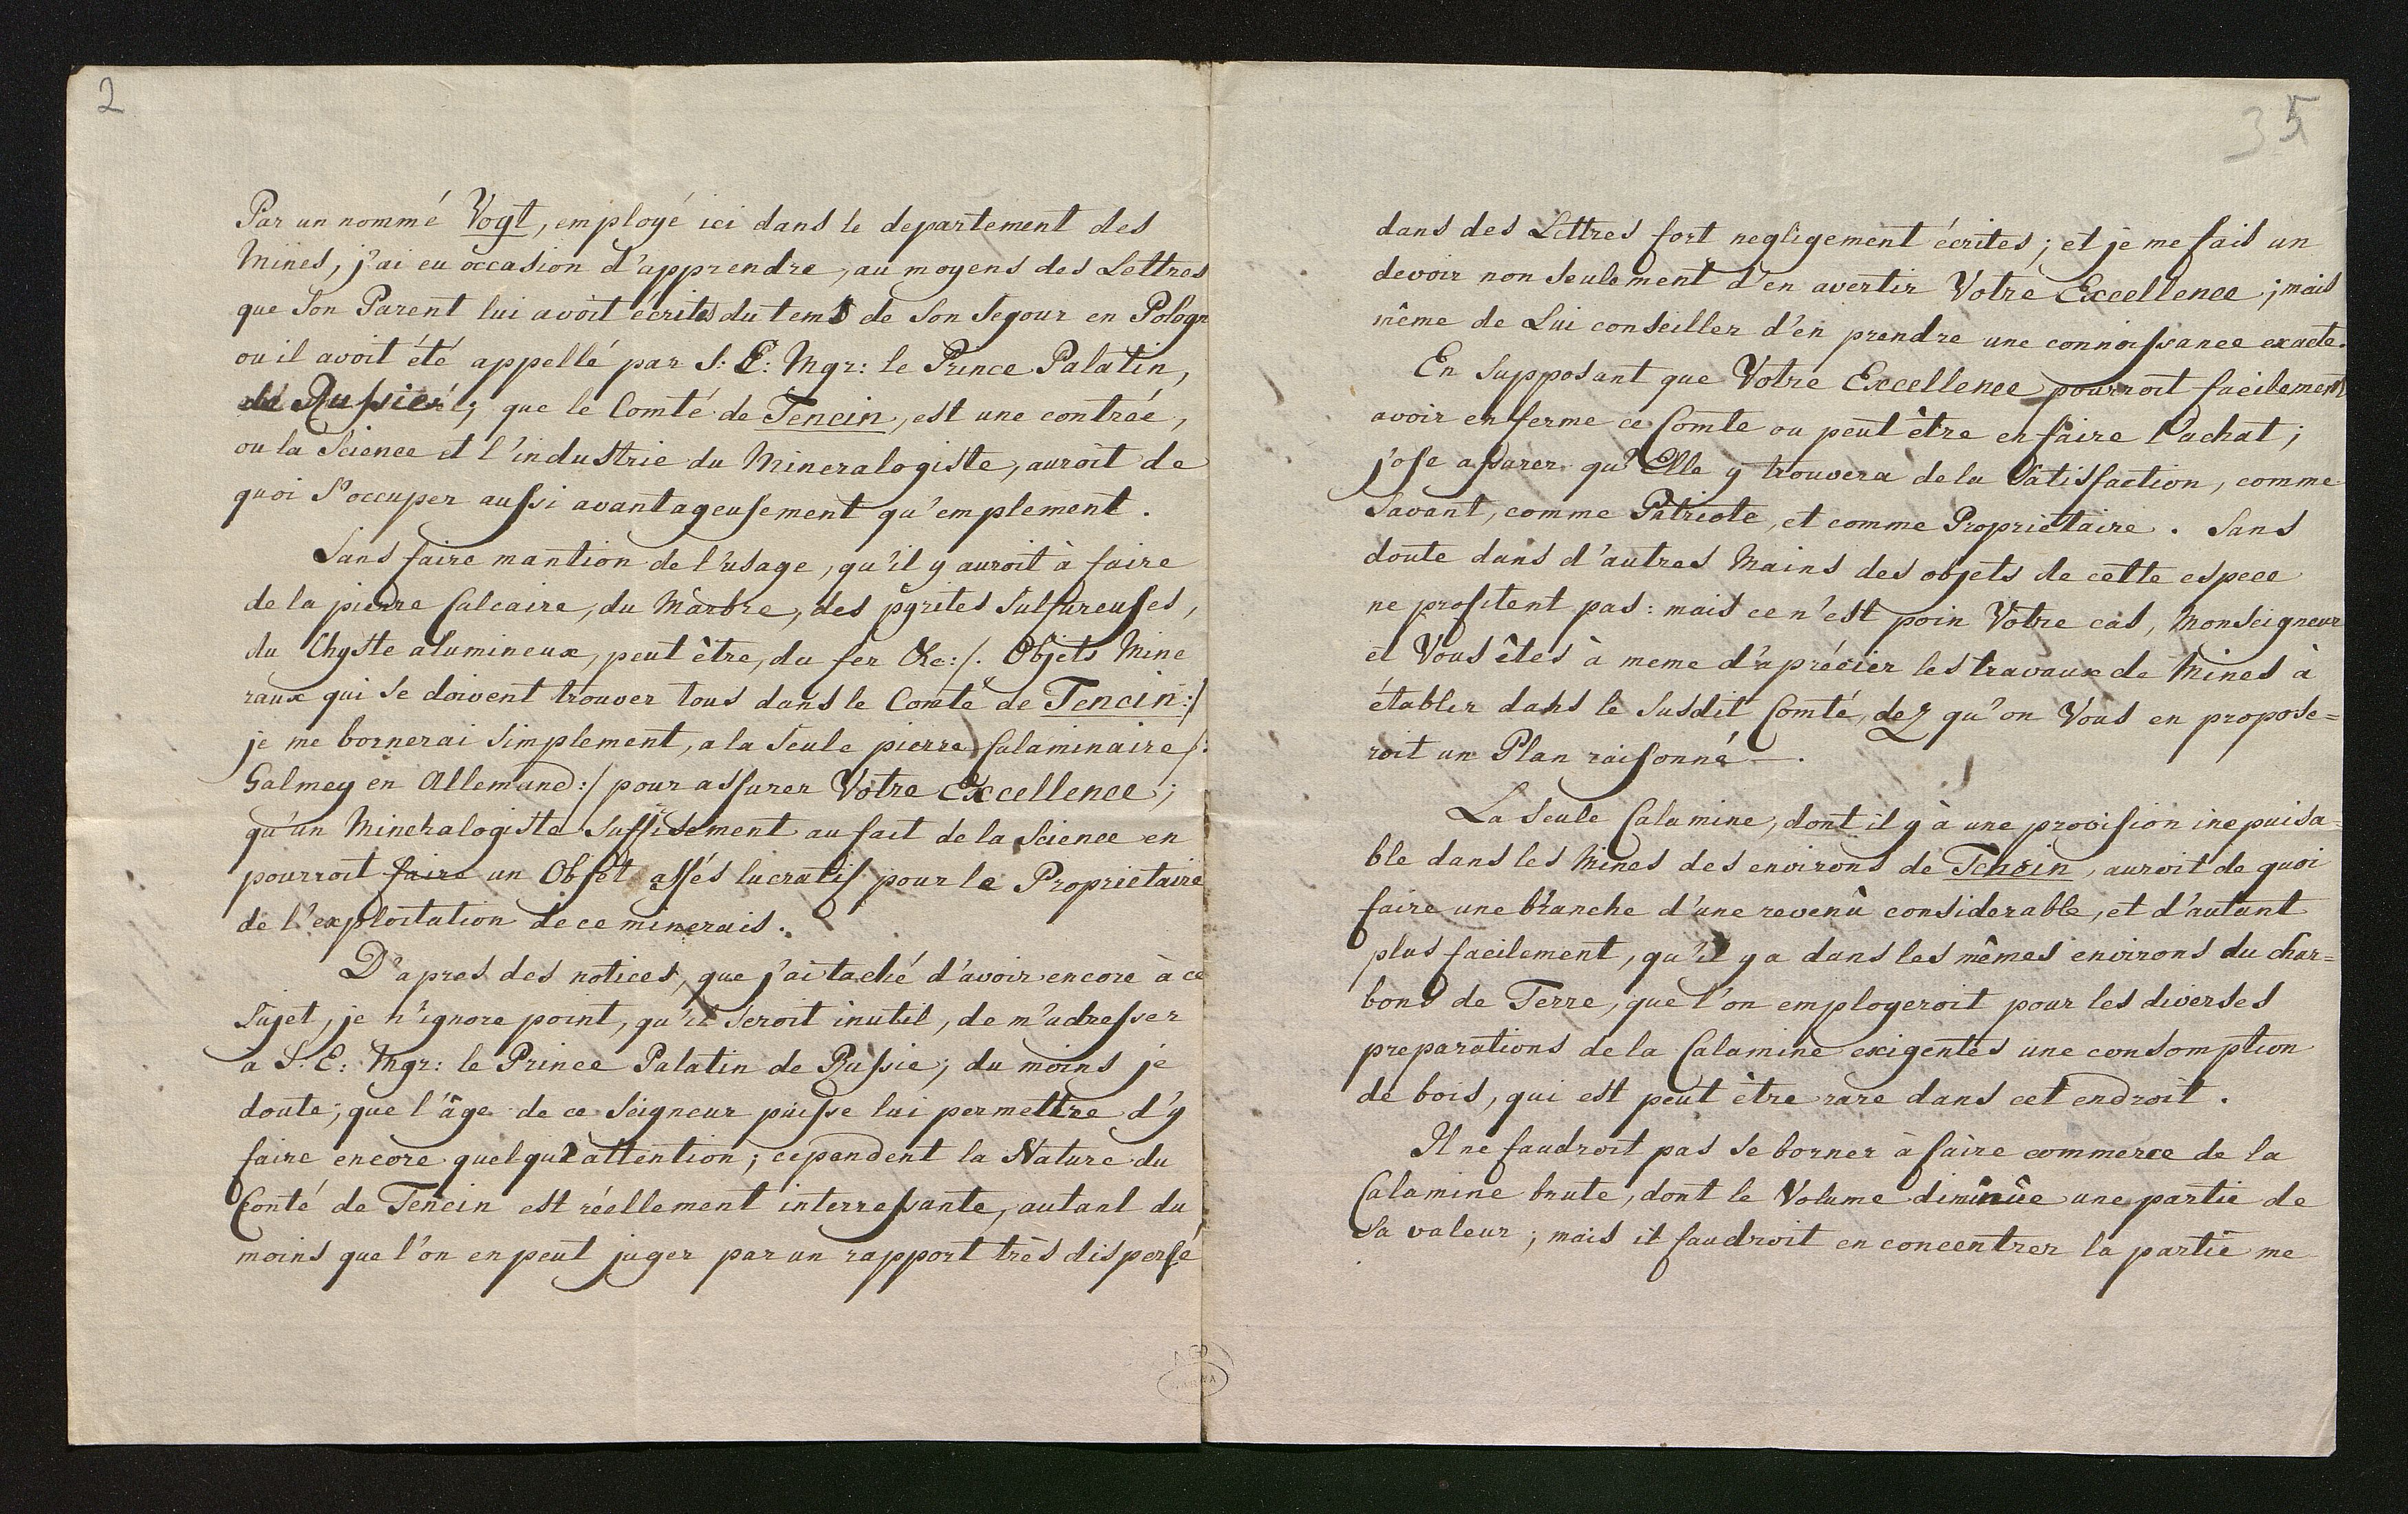 2
Par un nommé Vogt, employé ici dans le departement des
Mines, j'ai eu occasion d'apprendre, au moyens des Lettres
que Son Parent lui avoit écrites du tems de Son Segour en Pologn
ou il avoit été appellé par S: E: Mgr: le Prince Palatin,
de Russie; que le Comté de Tencin, est une contrée,
ou la Science et l'industrie du Mineralogiste, auroit de
quoi S'occuper aussi avantageusement qu'emplement.
Sans faire mantion de l'usage, qu'il y auroit à faire
de la pierre Calcaire, du Marbre, des pyrites Sulfureuses,
du Chyste alumineux, peut être, du fer &c:/. Objets Mine
raux qui se doivent trouver tous dans le Comté de Tencin:/
je me bornerai Simplement, a la Seule pierre Calaminaire /:
Galmey en Allemand:/ pour assurer Votre Excellence;
qu'un Mineralogiste Suffisement au fait de la Science en
pourroit faire un Objet assés lucratif pour le Proprietaire
de l'exploitation de ce minerais.
D'apres des notices, que j'ai taché d'avoir encore à ce
Sujet, je n'ignore point, qu'il Seroit inutil, de m'adresser
a S. E: Mgr: le Prince Palatin de Russie; du moins je
doute; que l'âge de ce Seigneur puisse lui permettre d'y
faire encore quelque attention; cependent la Nature du
Conté de Tencin est réellement interressante, autant du
moins que l'on en peut juger par un rapport très dispersé
35
dans des Lettres fort negligement écrites; et je me fais un
devoir non Seulement d'en avertir Votre Excellence; mais
même de Lui conseiller d'en prendre une connoissance exacte.
En Supposant que Votre Excellence pourroit facilement
avoir en ferme ce Comte ou peut être en faire l'achat;
j'ose assurer qu'Elle y trouvera de la Satisfaction, comme
Savant, comme Patriote, et comme Proprietaire. Sans
doute dans d'autres Mains des objets de cette espece
ne profitent pas: mais ce n'est poin Votre cas, Monseigneur
et Vous êtes à meme d'aprécier les travaux de Mines à
établir dans le Susdit Comté, dez qu'on Vous en propose=
roit un Plan raisonné.
La Seule Calamine, dont il y à une provision inepuisa=
ble dans les Mines des environs de Tencin, auroit de quoi
faire une branche d'une revenû considerable, et d'autant
plus facilement, qu'il y a dans les mêmes environs du char=
bons de Terre, que l'on employeroit pour les diverses
preparations de la Calamine exigentes une consomption
de bois, qui est peut être rare dans cet endroit.
Il ne faudroit pas Se borner à faire commerce de la
Calamine brute, dont le Volume diminûe une partie de
Sa valeur; mais il faudroit en concentrer la partie me